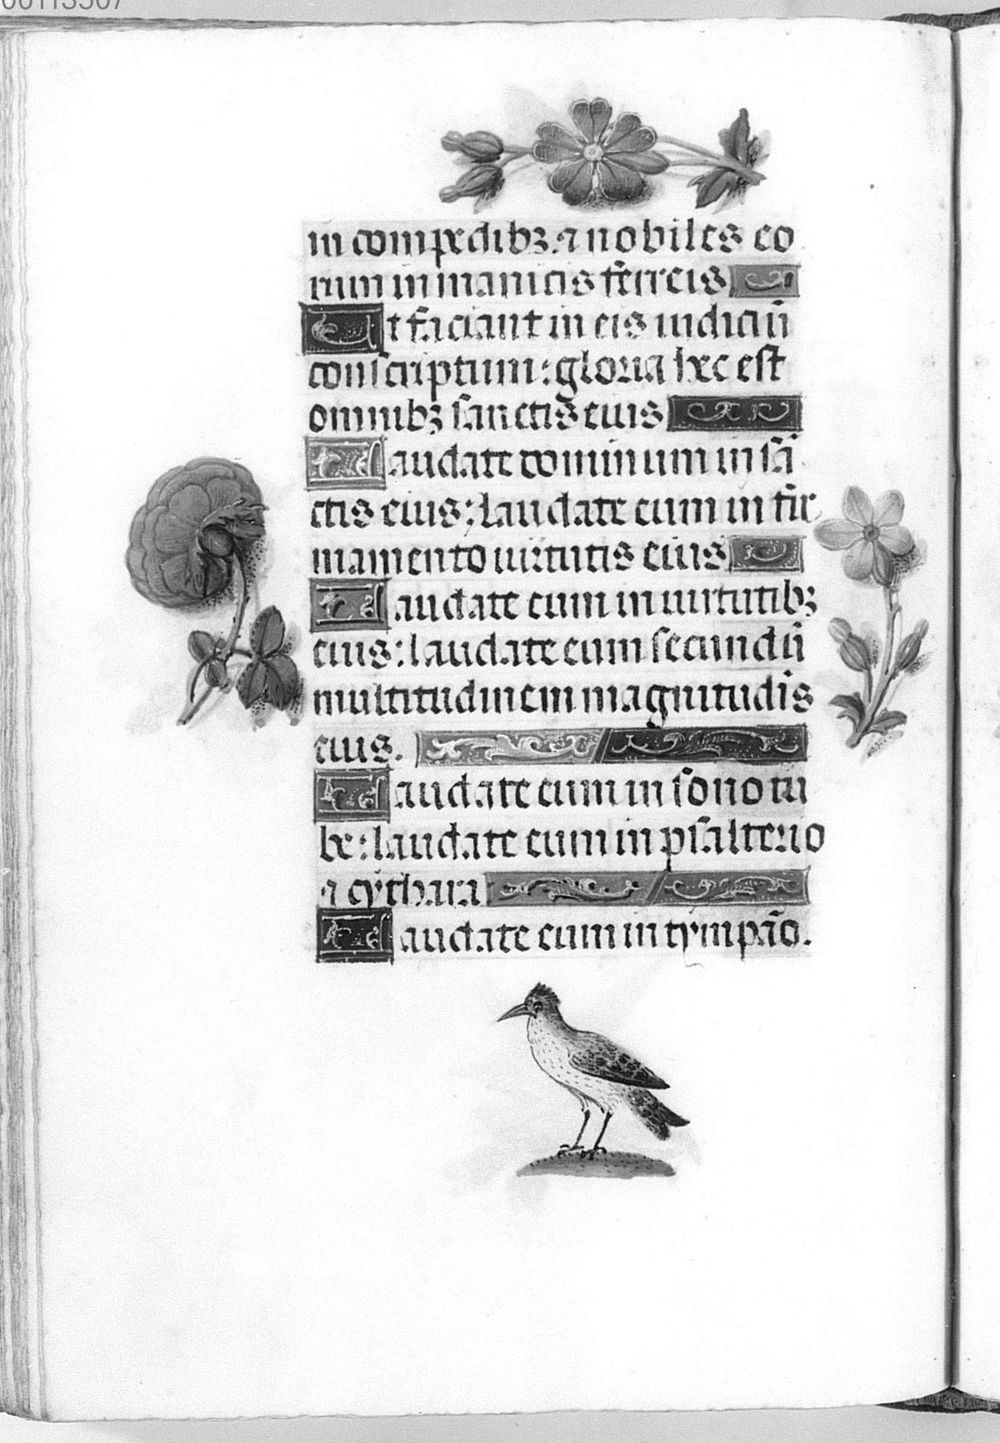 00113507
in compedibꝫ: ⁊ nobiles eo
rum in manicis ferreis
Ut faciant in eis iudiciū
conscriptum: gloria hec est
omnibꝫ sanctis eius
Laudate dominum in sā
ctis eius: laudate eum in fir
mamento uirtutis eius
Laudate eum in uirtutibꝫ
eius: laudate eum secundū
multitudinem magnitudīs
eius.
Laudate eum in sono tu
be: laudate eum in psalterio
⁊ cythara
Laudate eum in tympāo.